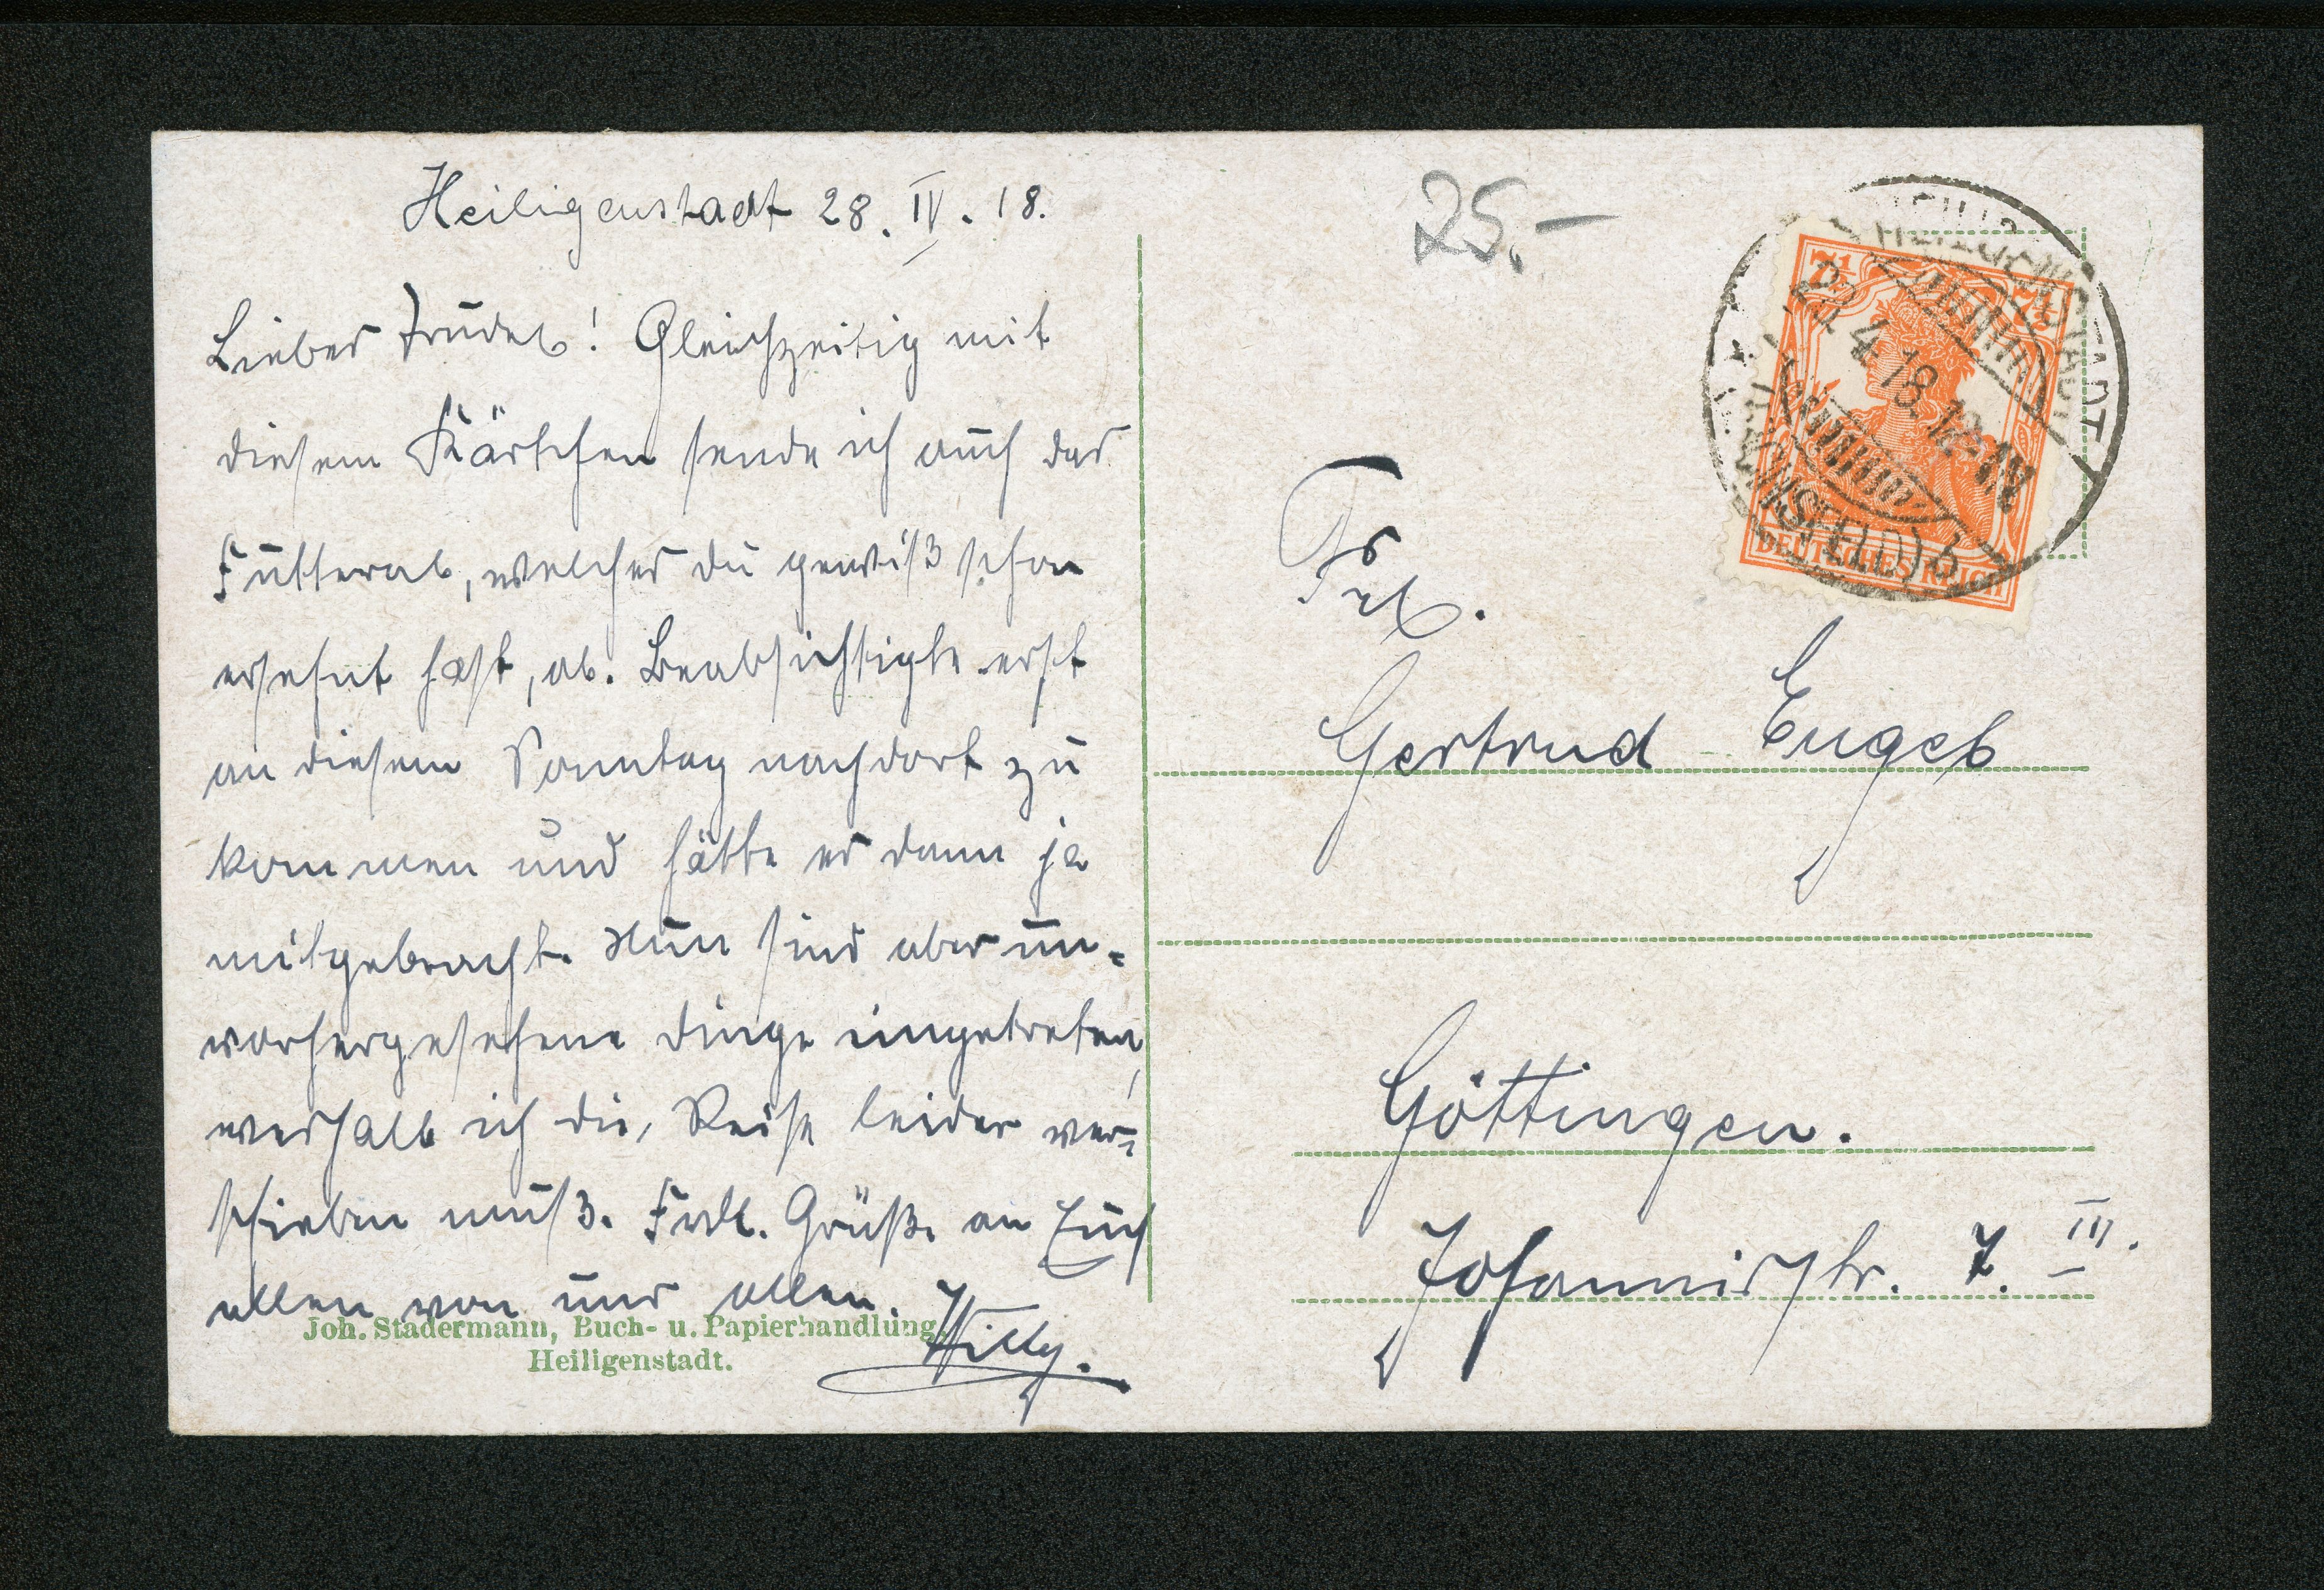 Heiligenstadt 28. IV. 18.
Liebes Trudel! Gleichzeitig mit
diesem Kärtchen sende ich auch das
Futteral, welches du gewiß schon
ersehnt hast, ab. Beabsichtigte erst
an diesem Sonntag nach dort zu
kommen und hätte es dann ja
mitgebracht. Nun sind aber un-
vorhergesehene Dinge eingetreten,
weshalb ich die Reise leider ver-
schieben muß. Frdl. Grüße an Euch
allen von uns allen.
Willy.
Joh. Stadermann, Buch- u. Papierhandlung,
Heiligenstadt.
25.-
7½ 7½
DEUTSCHES REICH
HEILIGENSTADT
4.18.12-
(EICHSFELD) b
Frl.
Gertrud Engel
Göttingen.
Johannisstr. 7. III.